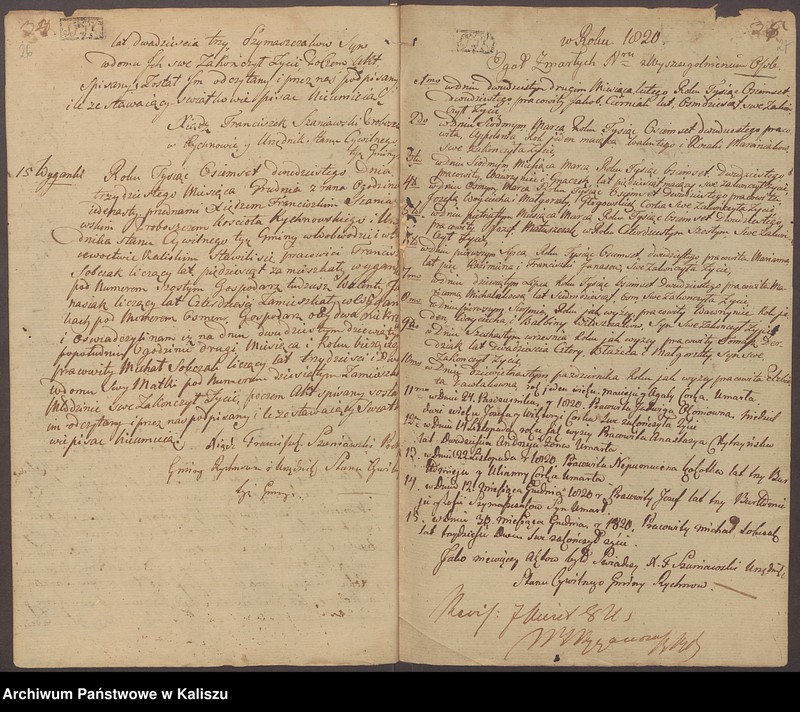 26
lat dwadzieścia trzy, Szymaszczaków Syn
w domu Ich swe Zakończył Życie, poczem Akt
Spisany Został Im odczytany i przez nas podpisany
i że Stawaiący Swiatkowie pisac Nieumieią
Xiądz Franciszek Szaniawski Proboszcz
w Rychnowie y Urzędnik Stanu Cywilnego
tyż Gminy
15 Wyganki
Roku Tysiąc Osmset dwudziestego dnia
trzydziestego Miesiąca Grudnia z rana o godzinie
iedenasty, przednami Xiędzem Franciszkiem Szania
wskim Proboszczem Kościoła Rychnowskiego i Urzę
dnika Stanu Cywilnego tyż Gminy w Obwodzie i w
wojewodztwie Kaliskim Stawiliśie pracowici Francisz
Sobczak liczący lat piędziesiąt zamieszkały w Wygan
pod Numerem Szostym Gospodarz tudzież Walenty I
nasiak liczący lat Czterdzieści Zamieszkały w
kach pod Numerem Osmem, Gospodarz obydwa
i Oswiadczyli nam iż na dniu dwudziestym dziewiątym
popołudniu o godzinie drugi Miesiąca i Roku bierzącego
pracowity Michał Sobczak liczący lat trzydzieści i Dwa
w domu Swy Matki pod Numerem dziesiątym Zamieszka
Młodzienic Swe Zakończył Życie, poczem Akt spisany został
im odczytany i przez nas podpisany i że Stawaiący Swiat
wie pisac Nieumieią
Xiądz Francisz. Szaniawski Pro
Gminy Rychnow i Urzędnik Stanu Cywil
tyż Gminy.
27
w Roku 1820.
Zgoł Zmarłych Nru z Wyszczegolnieniem Osob.
1mo w dniu dwudziestym drugim Miesiąca lutego Roku Tysiąc Osmset
dwudziestego pracowity Jakob Cierniak lat Osmdziesiąt swe Zakoń
czył Życie
2do w dniu Siodmym Marca Roku Tysiąc Osmset dwudziestego praco
wita Appolonia Rok ieden maiąca Walentego i Rozalii Marciniaków,
Swe zakończyła Życie
3tio w dniu Siodmym Miesiąca Marca Roku Tysiąc Osmset Dwudziestego
pracowity Wawrzyniec Ignaczak lat piędziesiąt maiący swe zakończył życie,
4to w dniu Osmym Marca Roku Tysiąc Osmset dwudziestego pracowita
Jozefa Woyciecha i Małgorzaty Głogowskich Corka Swe Zakończyła Życie
5to w dniu piętnastym Miesiąca Marca Roku Tysiąc Osmset Dwudziestego
pracowity Jozef Matuszczak w Roku Czterdziestym Szostym Swe Zakoń
czył Życie,
6to w dniu pierwszym Lipca Roku Tysiąc Osmset dwudziestego pracowita Marianna
lat pięć Kazimierza i Franciszki Janasów, Swe Zakończyła Życie,
7mo w dniu dziewiątym Lipca Roku Tysiąc Osmset Dwudziestego pracowita Ma
rianna Michalakowa lat Siedmdziesiąt Osm Swe Zakończyła Życie,
8mo w dniu pierwszym Sierpnia Roku jak wyży pracowity Wawrzyniec Rok je
den Woyciecha i Balbiny Witczaków, Syn Swe Zakończył Życie
9no w dniu Szesnastym września Roku jak wyży pracowity Tomasz
lat Dwadzieścia Cztery, Błażeia i Małgorzaty Syn swe
Zakończył Życie,
10mo w dniu Dziewiętnastym października Roku jak wyży pracowita Elżbie
ta Pawlakowna rok jeden wieku maiąca Agaty Corka Umarła.
11mo w Dniu 24. Pazdziernika r. 1820. Pracowita Jadwiga Oloniowna niedziel
dwie wieku Jozefa y Wiktoryi Corka Swe zakończyła Życie
12. w Dniu 14 Listopada roku jak wyży Pracowita Anastazya Chytrzyńska
lat Dwadzieścia Andrzeja Żona Umarła.
13. w Dniu 22 Listopada r. 1820. Pracowita Nepomucena lat trzy
Tomasza y Ulianny Corka Umarła
14. w Dniu 12. miesiąca Grudnia 1820 r. Pracowity Jozef lat trzy Bartłomie
ja y Zofii Szymaszczaków Syn Umarł.
15. w Dniu 30. miesiąca Grudnia r. 1820. Pracowity michał Sobczak
lat trzydzieści Dwa swe zakończył życie.
Jako niewięcy Aktow było Swiadczę X. F. Szaniawski Urzędnik
Stanu Cywilnego Gminy Rychnow.
Archiwum Państwowe w Kaliszu